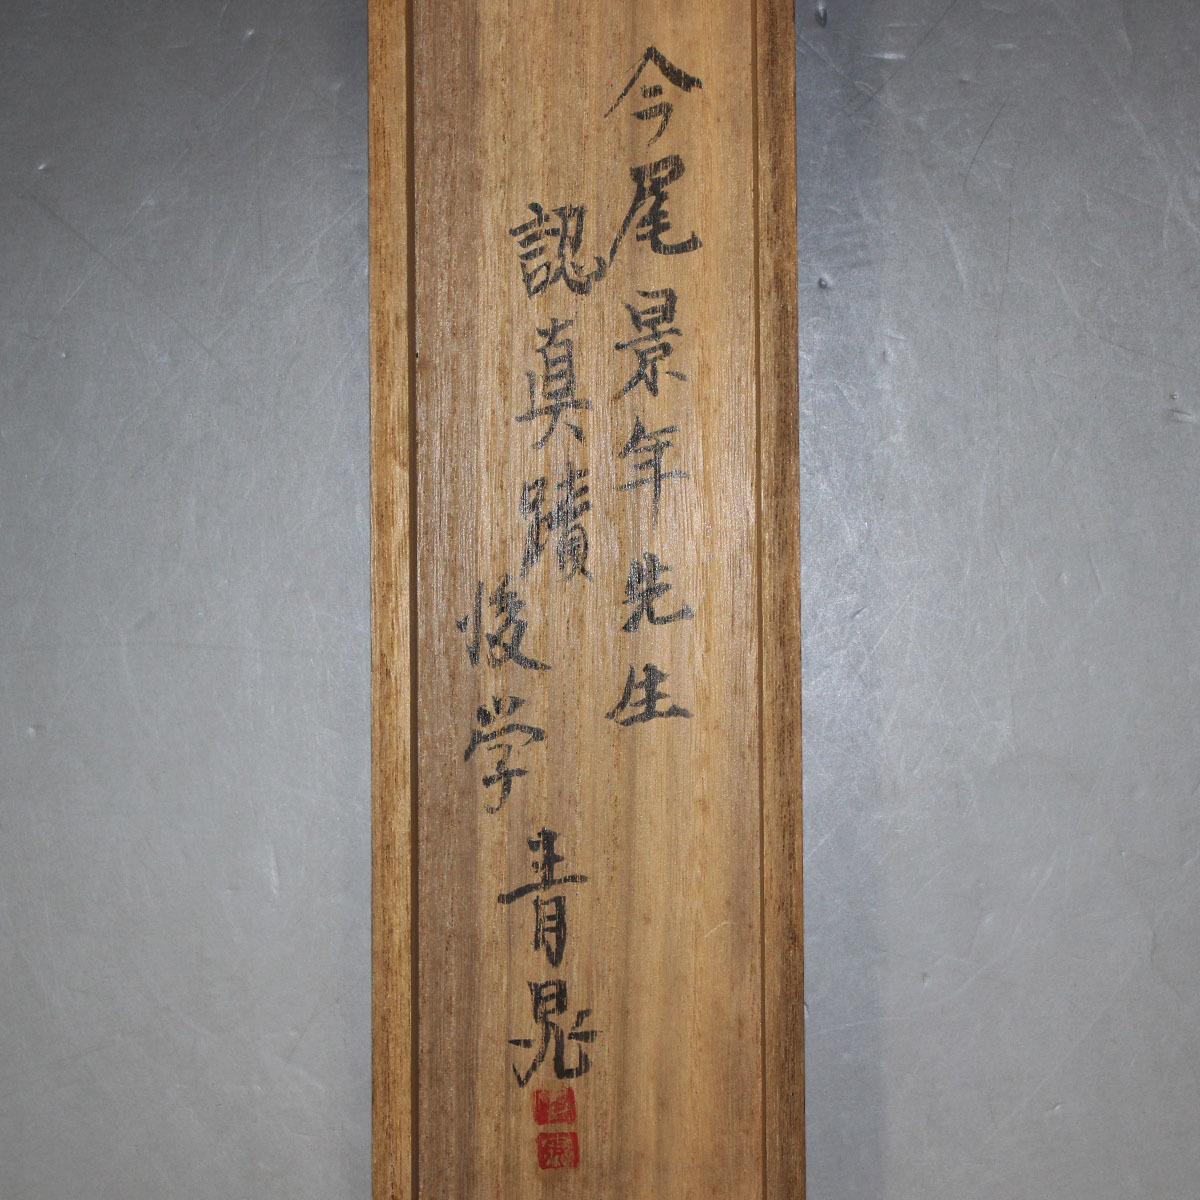 今尾景年先生
認真蹟
後学
青晃